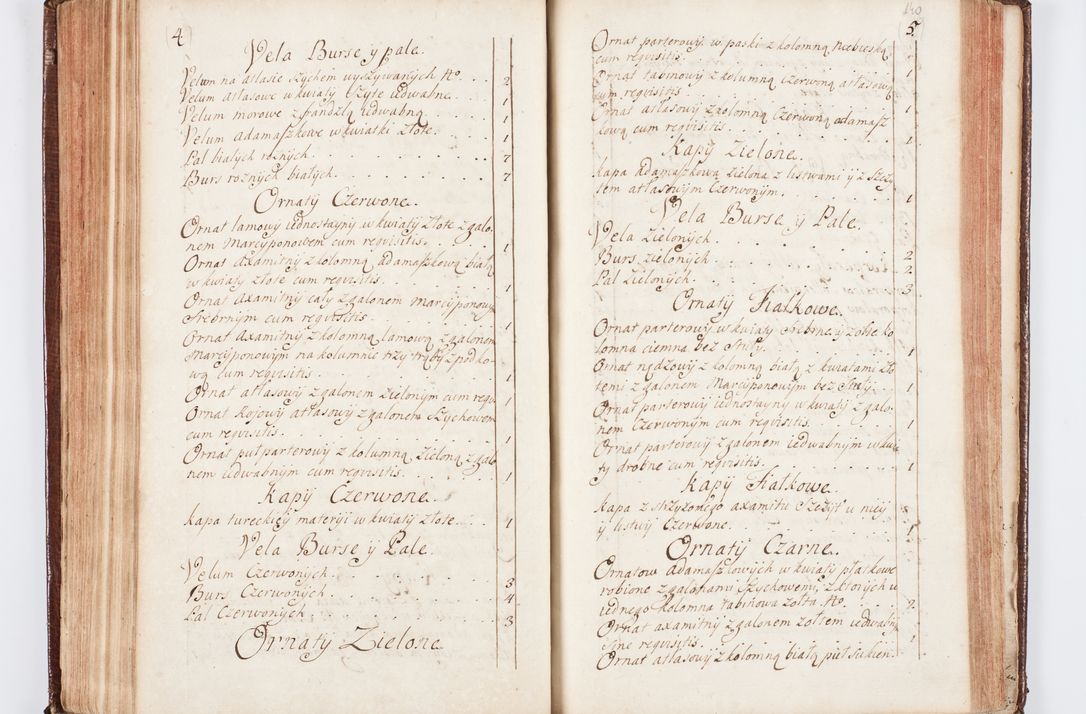 4
Vela Burse ÿ pale.
Velum na atlasie szychem wyszywanych No. 2
Velum Atlasowe w kwiaty szyte iedwabne. 1
Velum morowe z frandzlą iedwabną 1
Velum adamaszkowe w kwiatki złote. 1
Pal białych roznÿch. 7
Burs roznych białÿch. 7
Ornatÿ Czerwone.
Ornat lamowÿ iednostaÿnÿ w kwiatÿ złote z galo-
nem Marcÿponowem cum requisitis. 1
Ornat Axamitnÿ z kolomną adamaszkową białą
w kwiatÿ złote cum requisitis. 1
Ornat Axamitnÿ całÿ z galonem marcÿponowÿ
srebrnÿm cum requisitis. 1
Ornat Axamitnÿ z kolomną lamową z galonem
Marcÿponowÿm na kolumnie trzÿ trąbÿ z podko-
wą cum requisitis. 1
Ornat atłasowÿ z galonem zielonÿm cum requi. 1
Ornat Rosowÿ atłasowÿ z galonem szÿchowem
cum requisitis. 1
Ornat puł parterowÿ z kolumną zieloną z galo
nem iedwabnÿm cum requisitis. 1
Kapÿ Czerwone.
Kapa tureckieÿ materÿi w kwiatÿ złote. 1
Vela Burse ÿ Pale.
Velum Czerwonÿch. 3
Burs Czerwonÿch. 4
Pal Czerwonÿch. 3
Ornatÿ Zielone.
140
5.
Ornat parterowÿ w paski z kolomną niebieską
cum requisitis. 1
Ornat tabinowÿ z kolumną czerwoną atłasową
cum requisitis. 1
Ornat atłasowÿ z kolomną czerwoną adamasz
kową cum requisitis. 1
Kapÿ Zielone.
Kapa Adamaszkowa zielona z listwami ÿ z szczÿ
tem atłasowÿm Czerwonÿm. 1
Vela Burse ÿ Pale.
Vela Zielonÿch. 2
Burs zielonÿch. 2
Pal Zielonÿch. 3
Ornatÿ Fialkowe.
Ornat parterowÿ w kwiatÿ srebrne ÿ złote ko
lomna ciemna bez stułÿ. 1
Ornat rządzowÿ z kolomną białą z kwiatami zło
temi z galonem Marcÿponowÿm bez stułÿ. 1
Ornat parterowÿ iednostaÿnÿ w kwiatÿ z galo-
nem Czerwonÿm cum requisitis. 1
Ornat parterowÿ z galonem iedwabnÿm w kwia
tÿ drobne cum requisitis. 1
Kapÿ Fialkowe.
Kapa z strzÿżonego axamitu szczÿt u nieÿ
ÿ listwÿ Czerwone. 1
Ornatÿ Czarne.
Ornatow adamaszkowÿch w kwiatÿ płatkowe
robione z galonami szÿchowemi, z ktorÿch u
iednego kolomna tabinowa żołta No. 2.
Ornat axamitnÿ z galonem żołtem iedwabnÿ
sine requisitis. 1
Ornat atłasowÿ z kolomną białą